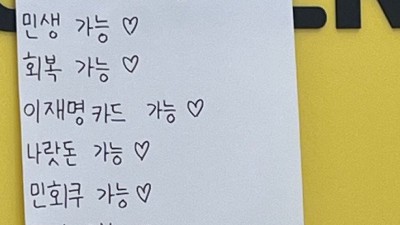 민생 가능 ♡
회복 가능 ♡
이재명카드 가능 ♡
나랏돈 가능 ♡
민회쿠 가능 ♡